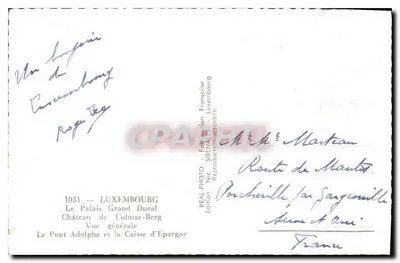 Un bonjour
de
Luxembourg
Roger
1051 — LUXEMBOURG
Le Palais Grand Ducal
Château de Colmar-Berg
Vue générale
Le Pont Adolphe et la Caisse d'Epargne
REAL PHOTO Fabrication Française
Edition Nic. Luxembourg
Reproduction interdite
CPRHAMA
Mr Me Marteau
Route de Mantes
Porcheville par Gargenville
Seine et Oise
France